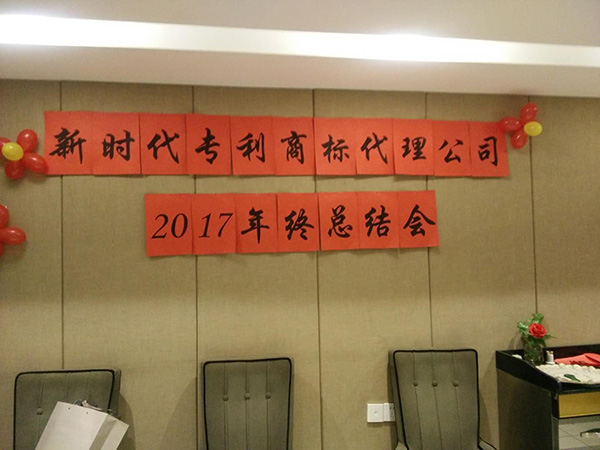 新时代专利商标代理公司
2017年终总结会